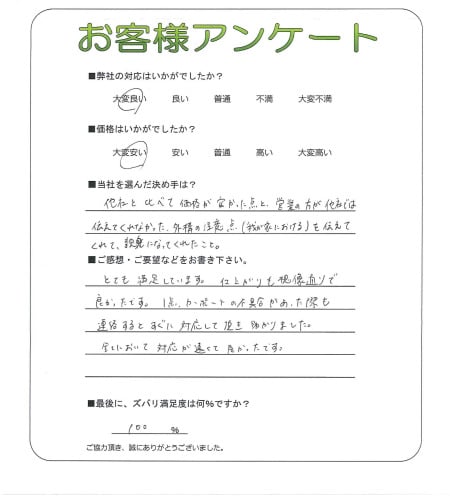 お客様アンケート
■弊社の対応はいかがでしたか？
大変良い 良い 普通 不満 大変不満
■価格はいかがでしたか？
大変安い 安い 普通 高い 大変高い
■当社を選んだ決め手は？
他社と比べて価格が安かった点と、営業の方が他社では
伝えてくれなかった、外構の注意点（我が家における）を伝えて
くれて、親身になってくれたこと。
■ご感想・ご要望などをお書き下さい。
とても満足しています。仕上がりも想像通りで
良かったです。1点、カーポートの不具合があった際も
連絡するとすぐに対応して頂き助かりました。
全てにおいて対応が速くて良かったです。
■最後に、ズバリ満足度は何%ですか？
100 %
ご協力頂き、誠にありがとうございました。